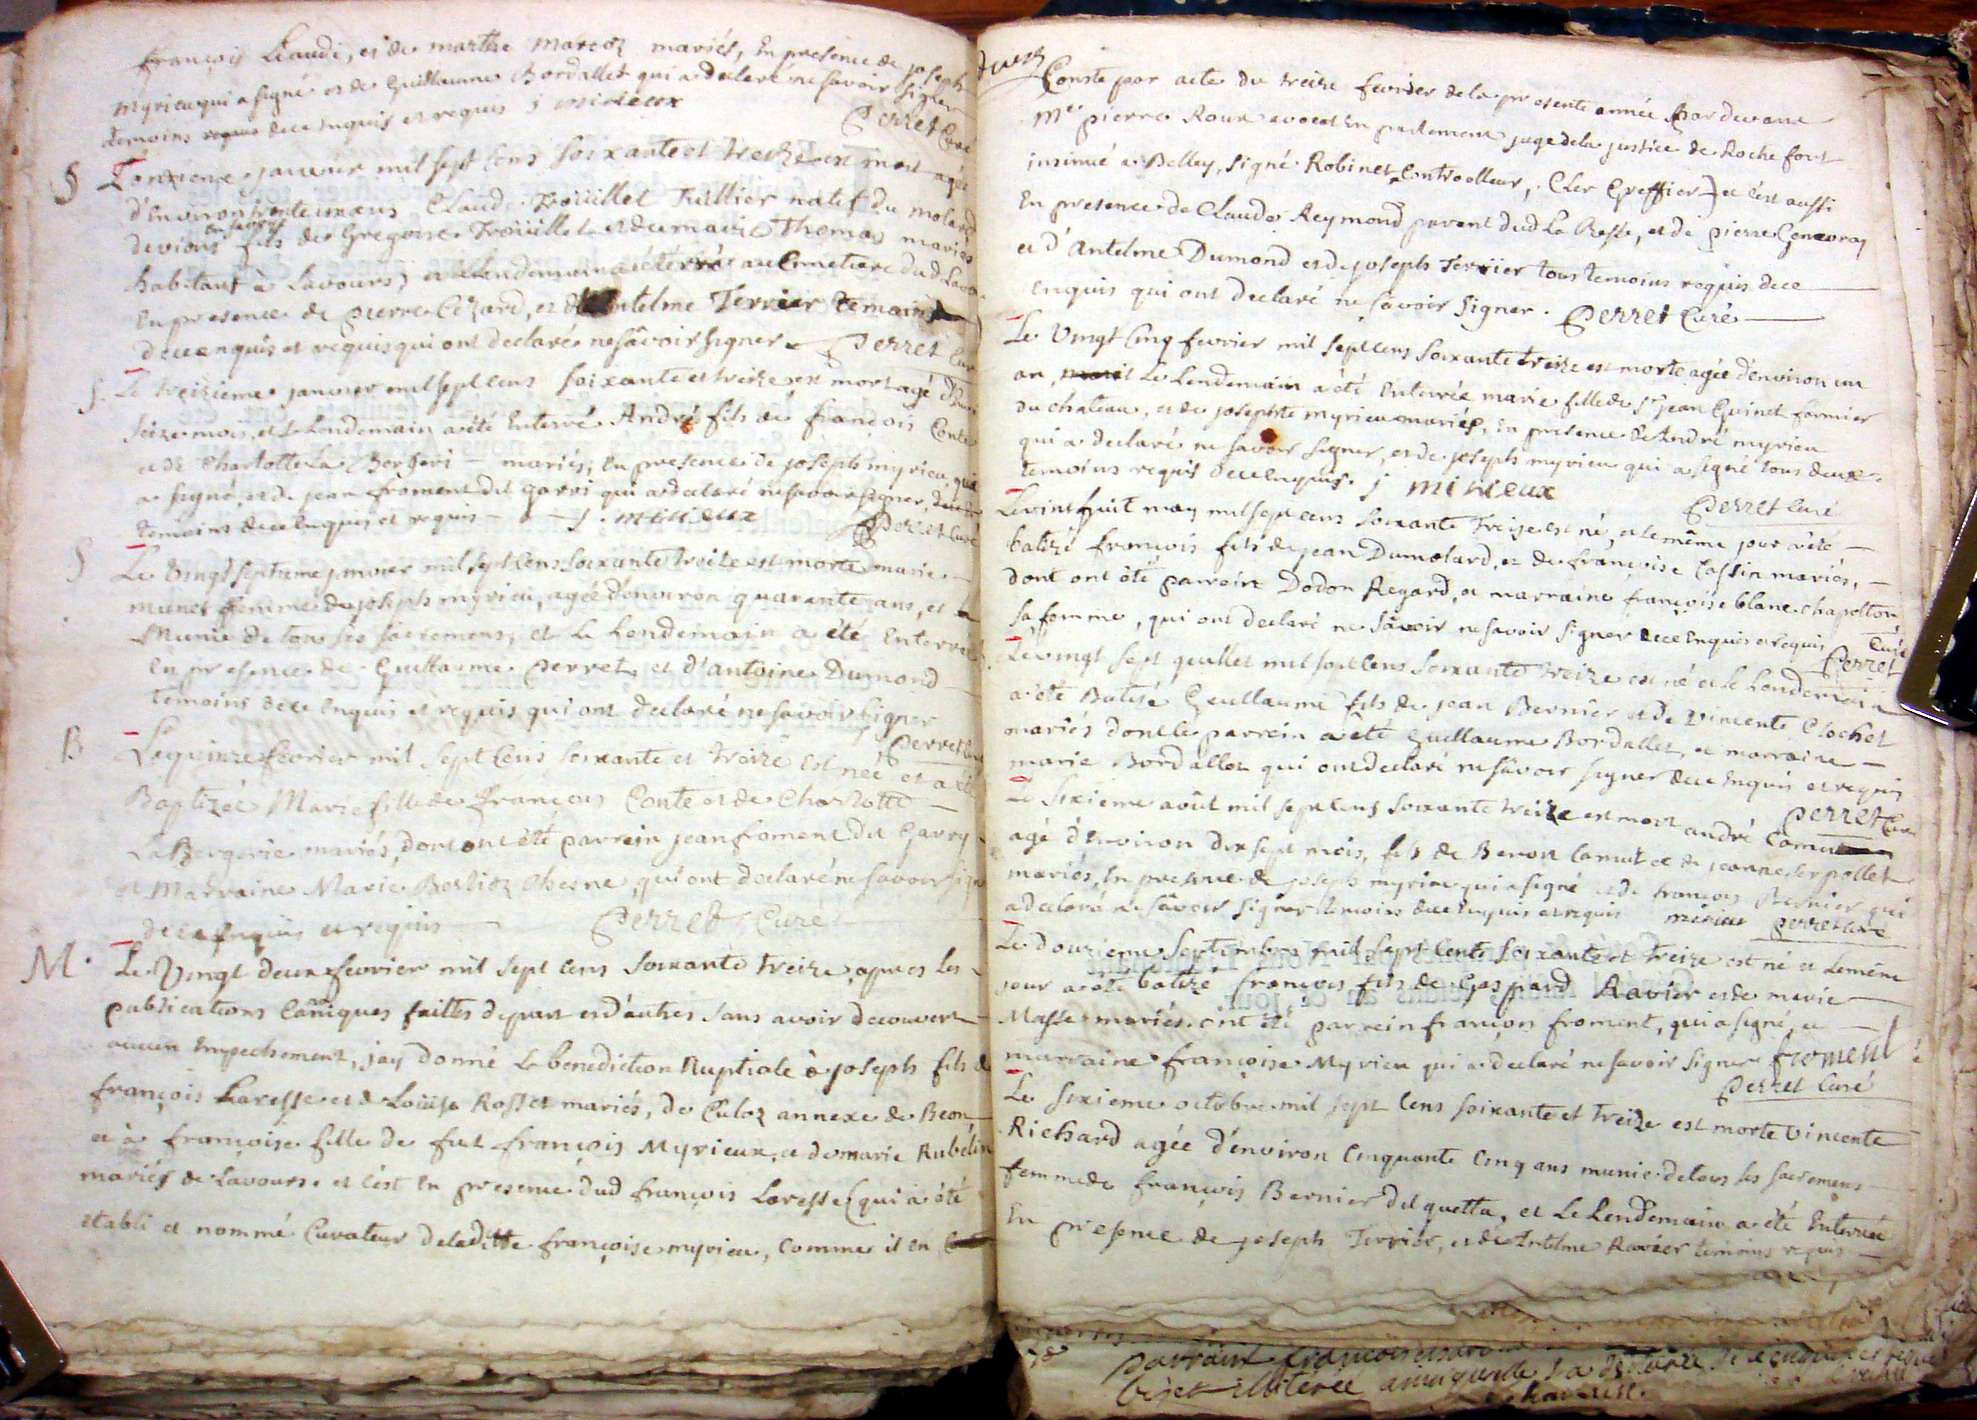 françois Liaudi, et de marthe marcoz mariés, En presence de joseph
myrieu qui a signé et de Guillaume Bordallet qui a declaré ne savoir signer
temoins dece Enquis et requis j mirieux
Perret Cure
S L'onzieme janvier mil sept cens soixante et treize est mort agé
d'Environ trente Claude Troüillet Tuillier natif du molard
de vions fils de Gregoire Troüillet et de marie Thomas mariés
habitant à Lavours, et le lendemain a été au Cimetiere dud Lavours
En presence de pierre Cezard, et d'antelme Terrier temoins
dece enquis et requis qui ont declaré ne sâvoir signer Perret Curé
S. Le treizieme janvier mil sept cens soixante et treize est mort agé d'Environ
seize mois, et le lendemain a été Enterré André fils de françois Conte
et de Charlotte La Bergeri mariés, En presence de joseph myrieu, qui
a signé, et de jean froment dit garri qui a declaré ne savoir signer,
temoins dece Enquis et requis - j. mirieux Perret Curé
S Le vingt septieme janvier mil sept cens soixante treize est morte marie
munet femme de joseph myrieu, agée d'environ quarante ans, et
Munie de tous ses sacremens, et le lendemain a été Enterrée
En presence de Guillaume Perret, et d'antoine Dumond
temoins dece Enquis et requis qui ont declaré ne savoir signer
Perret Curé
B Le quinze février mil sept cens soixante et treize est née et a été
Baptizée Marie fille de françois Conte et de Charlotte
La Bergerie mariés, dont ont été parrein jean froment dit Garry
et Marraine Marie Berlioz Chesne, qui ont declaré ne savoir signer
dece Enquis et requis Perret Curé
M. Le Vingt deux fevrier mil sept cens soixante treize, apres les
publications Canniques faittes depart et d'autres sans avoir decouvert
aucun Empechement, j'ay donné la benediction Nuptiale à joseph fils de
françois Laresse et de Loüise Rosset mariés, de Culoz annexe de Beon
et à françoise fille de fut françois Myrieux, et de marie Rubélin
mariés de Lavours. et c'est En presence dud françois Laresse (qui a été
etabli et nommé Curateur de laditte françoise myrieu, Comme il en
Conste par acte du treize fevrier de la presente année pardevant
Me pierre Roux avocat En parlement juge de la justice de Rochefort
insinué a Belley, signé Robinet Controlleur, Cler Greffier) et c'est aussi
En presence de Claude Reymond parent dud La Resse, et de pierre Genevray
et d'Antelme Dumond et de joseph Terrier tous temoins requis dece
enquis qui ont declaré ne sâvoir signer. Perret Curé
Le Vingt Cinq fevrier mil sept cens soixante treize est morte agée d'environ un
an, Le Lendemain a été Enterrée marie fille de Sr jean Guinet fermier
du chateau, et de josephte myrieu mariés, En presence de André myrieu
qui a declaré ne savoir signer, et de joseph myrieu qui a signé tous deux
temoins requis dece enquis. j mirieux
Perret Curé
Le vint huit may mil sept cens soixante Treize est né, et le même jour a été
batizé françois fils de jean Dumolard, et de françoise Cassin mariés,
dont ont été parrein Dodon Regard, et marraine françoise blanc chapolton
sa femme, qui ont declaré ne sâvoir ne savoir signer dece Enquis et requis Perret Curé
Le vingt sept jeuillet mil sept cens soixante treize est né et le lendemain
a été Batisé Geuillaume fils de jean Bernier et de vincente Clochet
mariés dont le parrein a été Guillaume Bordallet, et marraine
marie Bordallet qui ont declaré ne sâvoir signer dece Enquis et requis
Perret Curé
Le sixieme août mil sept cens soixante treize est mort andré Camu
agé d'Environ dix sept mois, fils de Benoit Camut et de jeanne Serpollet
mariés, En presence de joseph myrieu qui a signé et de françois Bernier qui
a declaré ne sâvoir signer temoins dece Enquis et requis mirieux Perret Curé
Le douzieme septembre mil sept cents soixante et treize est né et le même
jour a été batizé françois fils de Gaspard Ravier et de marie
Masse mariés. ont été parrein françois froment, qui a signé, et
marraine françoise Myrieu qui a declaré ne savoir signer froment
Perret Curé
Le sixieme octobre mil sept cens soixante et treize est morte vincente
Richard agée d'environ Cinquante Cinq ans munie de tous les sacremens
femme de françois Bernier dit quetta, et Le Lendemain a été Enterrée
En presence de joseph Terrier, et de Antelme Ravier temoins requis